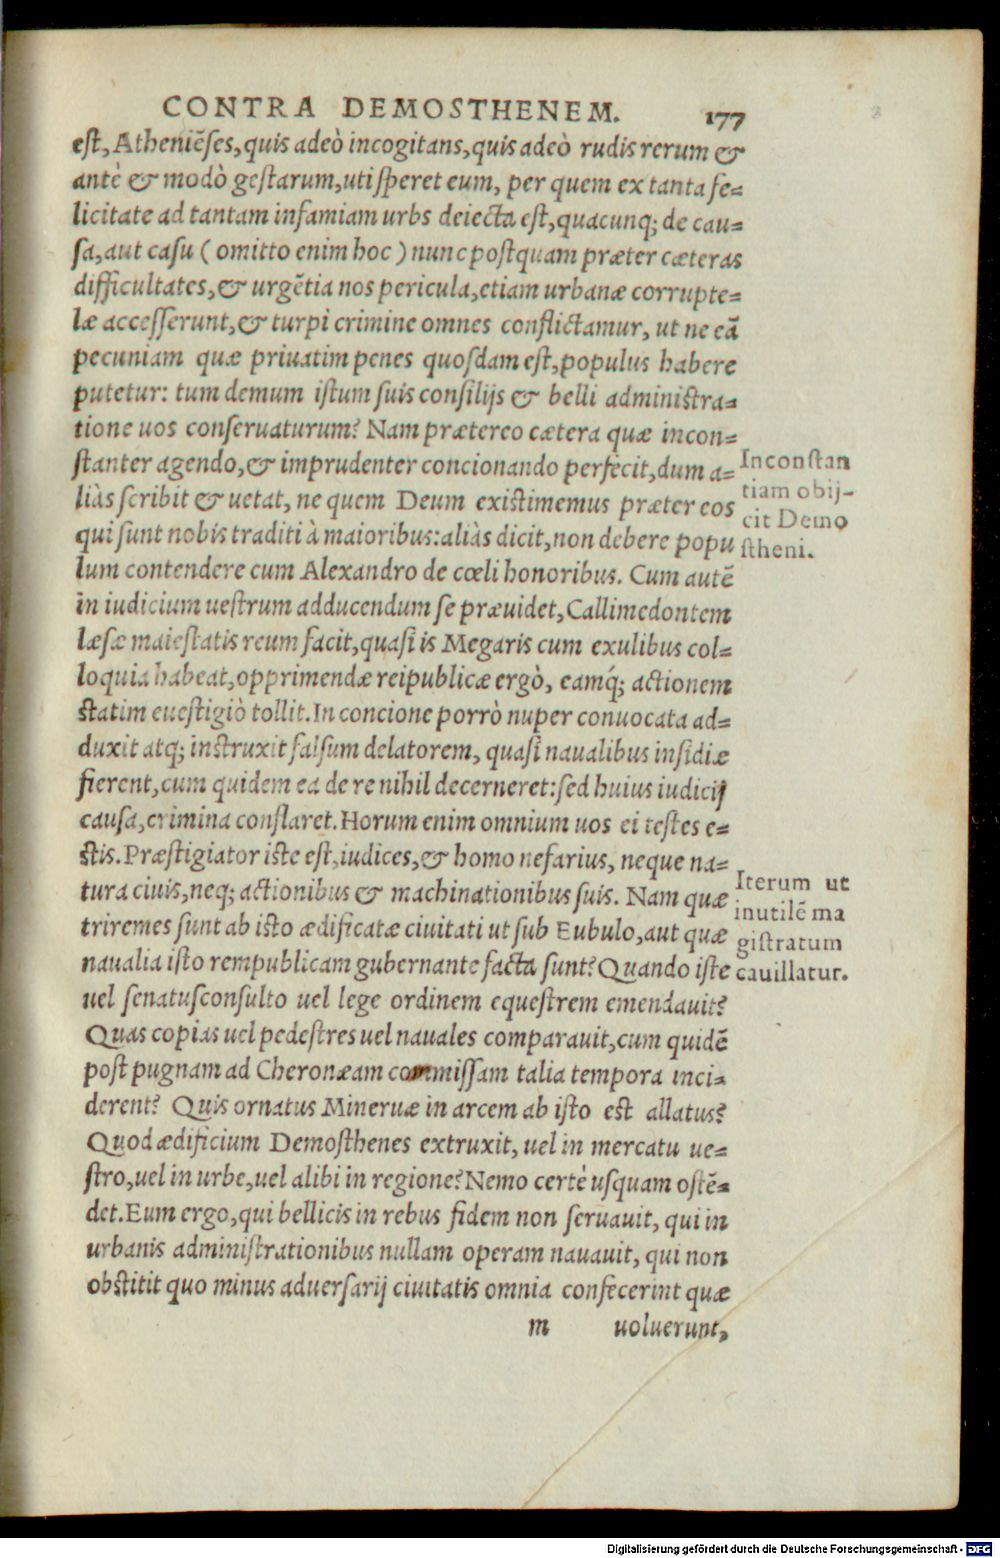 CONTRA DEMOSTHENEM. 177
est, Atheniẽses, quis adeò incogitans, quis adeò rudis rerum &
antè & modò gestarum, uti speret eum, per quem ex tanta fe=
licitate ad tantam infamiam urbs deiecta est, quacunq; de cau=
sa, aut casu ( omitto enim hoc ) nunc postquam præter cæteras
difficultates, & urgẽtia nos pericula, etiam urbanæ corrupte=
læ accesserunt, & turpi crimine omnes conflictamur, ut ne eã
pecuniam quæ priuatim penes quosdam est, populus habere
putetur: tum demum istum suis consilijs & belli administra=
tione uos conseruaturum? Nam prætereo cætera quæ incon=
stanter agendo, & imprudenter concionando perfècit, dum a=
liàs scribit & uetat, ne quem Deum existimemus præter eos
qui sunt nobis traditi à maioribus: aliàs dicit, non debere popu
lum contendere cum Alexandro de cœli honoribus. Cum autẽ
in iudicium uestrum adducendum se præuidet, Callimedontem
læsæ maiestatis reum facit, quasi is Megaris cum exulibus col=
loquia habeat, opprimendæ reipublicæ ergò, eamq́; actionem
statim euestigiò tollit. In concione porrò nuper conuocata ad=
duxit atq; instruxit falsum delatorem, quasi naualibus insidiæ
fierent, cum quidem ea de re nihil decerneret: sed huius iudicij
causa, crimina conflaret. Horum enim omnium uos ei testes e=
stis. Præstigiator iste est, iudices, & homo nefarius, neque na=
tura ciuis, neq; actionibus & machinationibus suis. Nam quæ
triremes sunt ab isto ædificatæ ciuitati ut sub Eubulo, aut quæ
naualia isto rempublicam gubernante facta sunt? Quando iste
uel senatusconsulto uel lege ordinem equestrem emendauit?
Quas copias uel pedestres uel nauales comparauit, cum quidẽ
post pugnam ad Cheronæam commissam talia tempora inci=
derent? Quis ornatus Mineruæ in arcem ab isto est allatus?
Quod ædificium Demosthenes extruxit, uel in mercatu ue=
stro, uel in urbe, uel alibi in regione? Nemo certè usquam ostẽ=
det. Eum ergo, qui bellicis in rebus fidem non seruauit, qui in
urbanis administrationibus nullam operam nauauit, qui non
obstitit quo minus aduersarij ciuitatis omnia confecerint quæ
m uoluerunt,
Inconstan
tiam obij-
cit Demo
stheni.
Iterum ut
inutilẽ ma
gistratum
cauillatur.
Digitalisierung gefördert durch die Deutsche Forschungsgemeinschaft - DFG